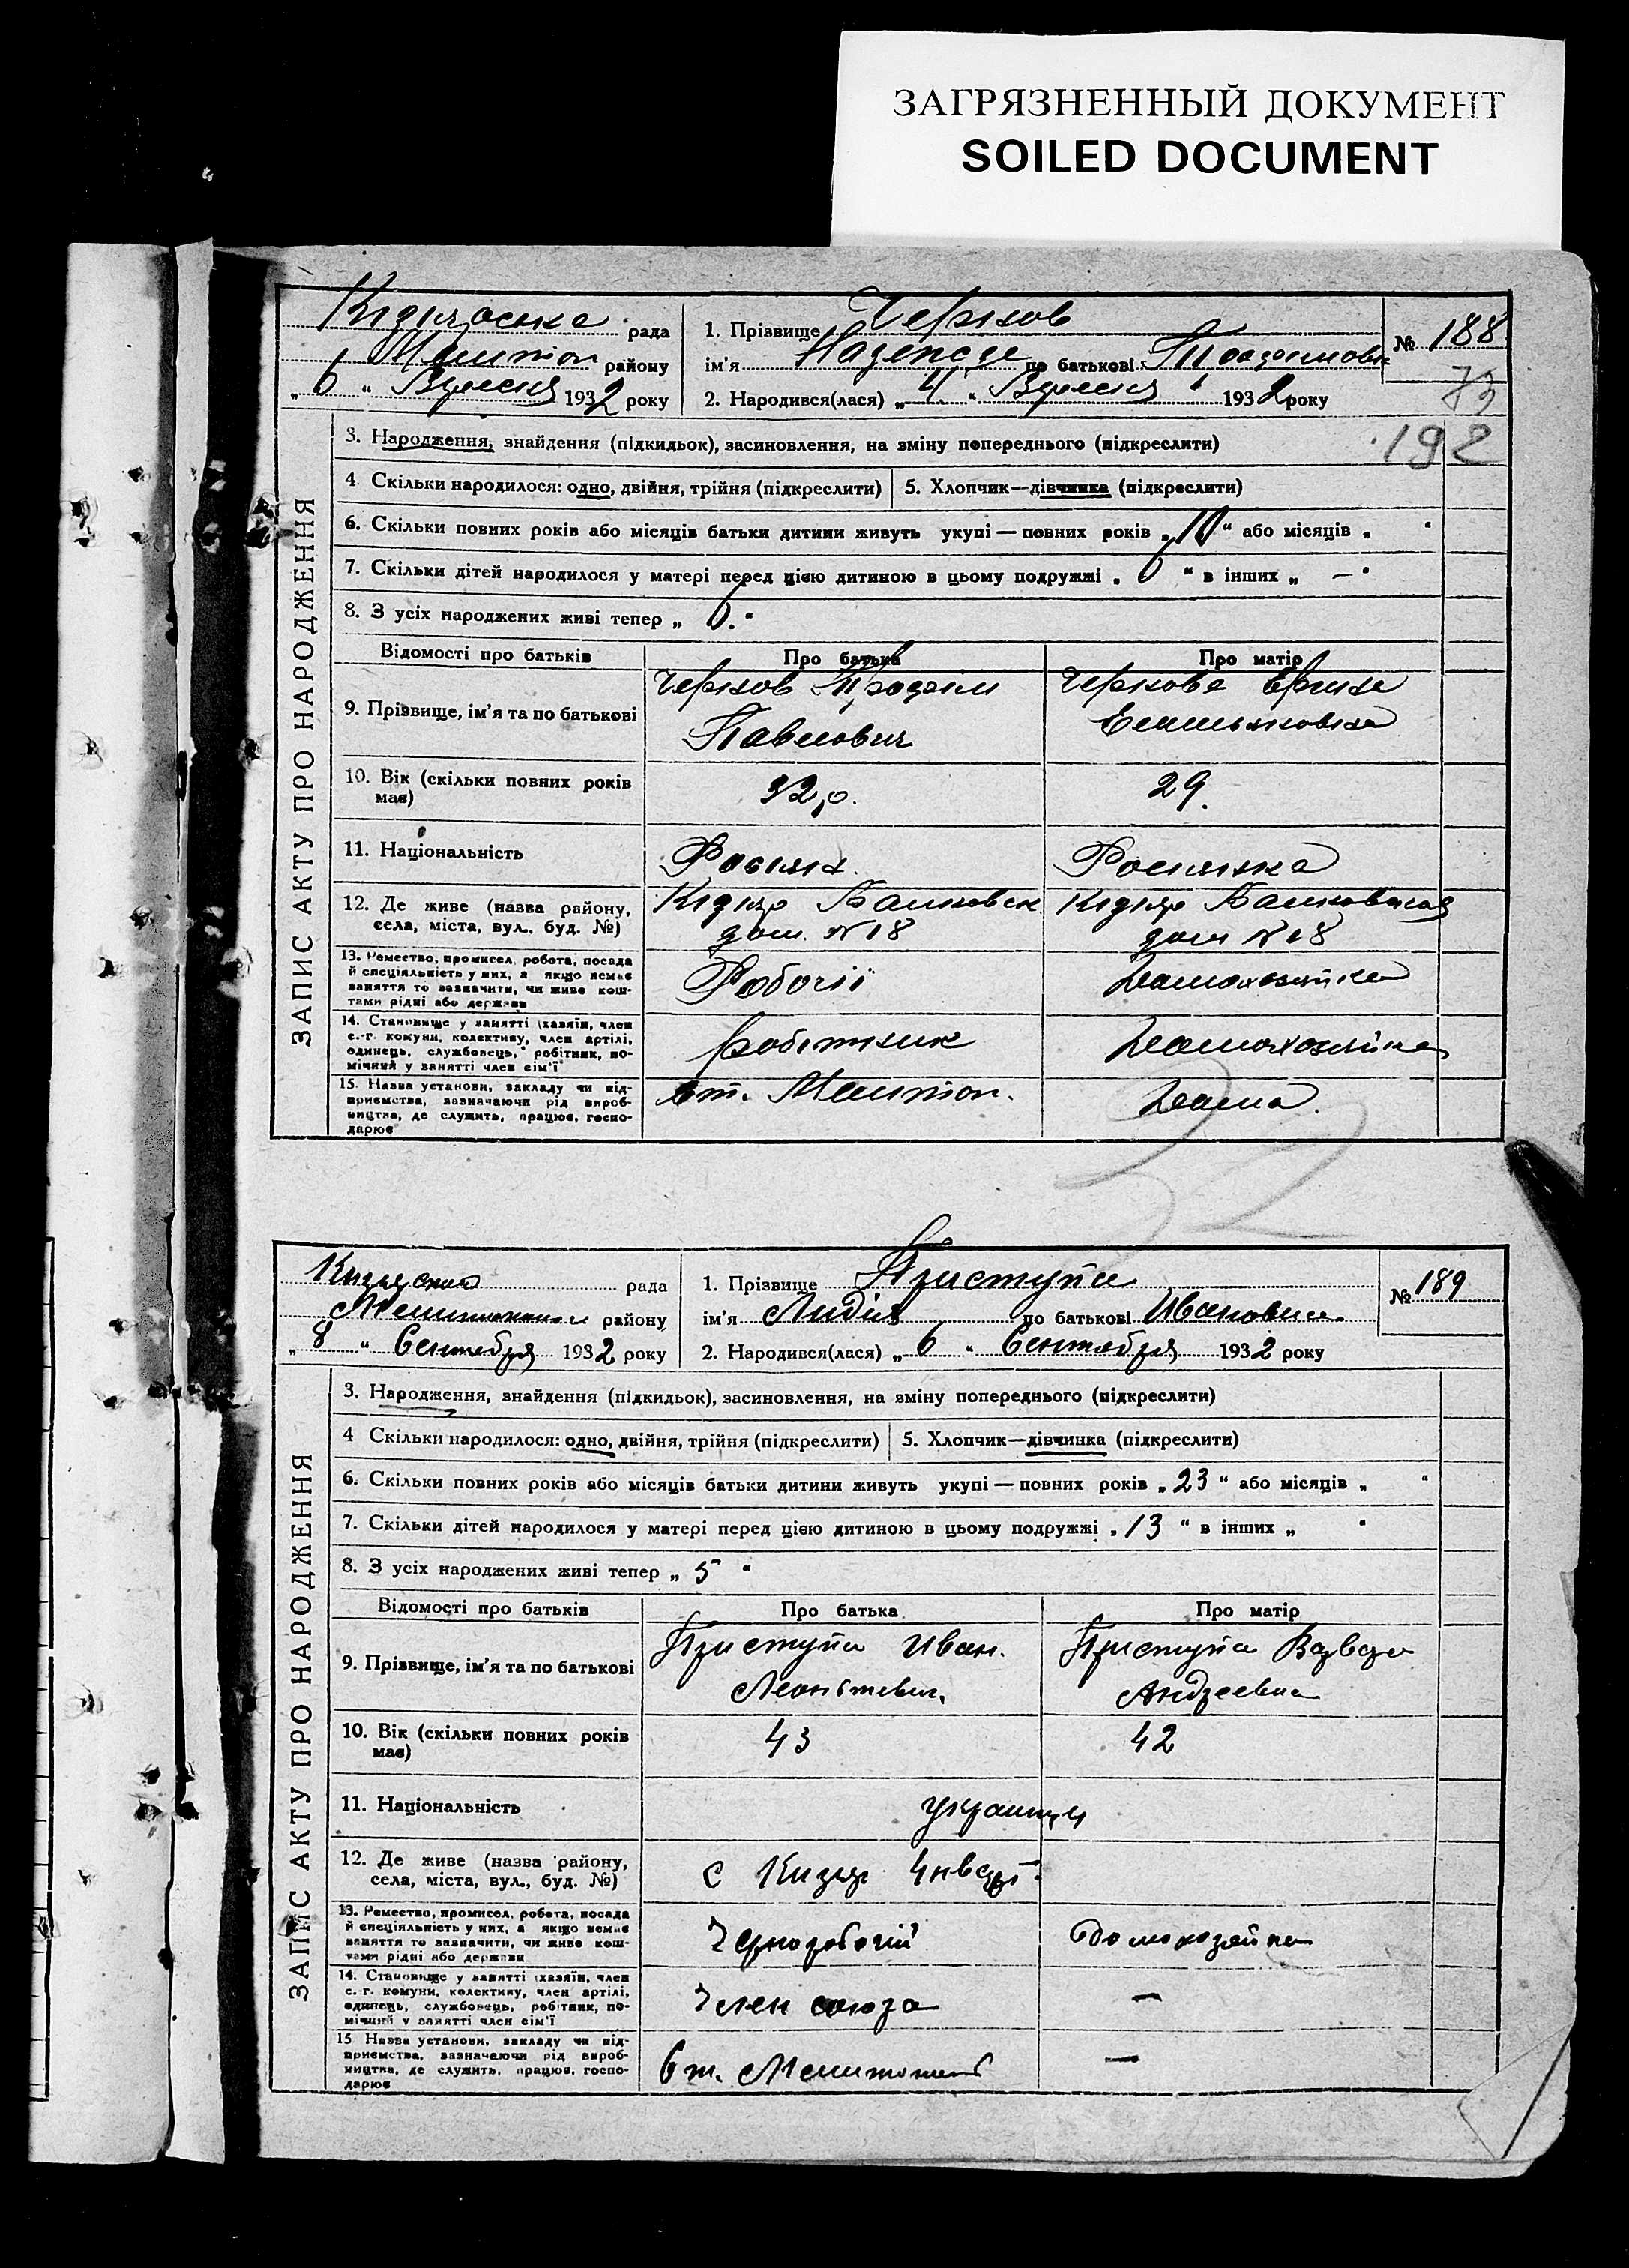 ЗАГРЯЗНЕННЫЙ ДОКУМЕНТ
SOILED DOCUMENT
рада
район
„ 6 “ Вересня 1932 року
1. Прізвище
ім'я по батькові
2. Народився(лася) „ 4 “ Вересня 1932 року
№ 188
73
192
ЗАПИС АКТУ ПРО НАРОДЖЕННЯ
3. Народження, знайдення (підкидьок), засиновлення, на зміну попереднього (підкреслити)
4. Скільки народилося: одно, двійня, трійня (підкреслити)
5. Хлопчик—дівчинка (підкреслити)
6. Скільки повних років або місяців батьки дитини живуть укупі — повних років „ 10 “ або місяців „ “
7. Скільки дітей народилося у матері перед цією дитиною в цьому подружжі „ 6 “ в інших „ — “
8. З усіх народжених живі тепер „ 6. “
Відомості про батьків
Про батька
Про матір
9. Прізвище, ім'я та по батькові
Павлович
10. Вік (скільки повних років
має)
32 р.
29.
11. Національність
Росіян.
Росиянка
12. Де живе (назва району,
села, міста, вул., буд. №)
дом. №18
дом №18
13. Ремество, промисел, робота, посада
й спеціяльність у них, а якщо немає
заняття то зазначити, чи живе кош-
тами рідні або держави
Робочій
Домохозяйка
14. Становище у занятті (хазяїн, член
с.-г. комуни, колективу, член артілі,
одинець, службовець, робітник, по-
мічний у занятті член сім'ї
робітник
Домохозяйка
15. Назва установи, закладу чи під-
приємства, зазначаючи рід вироб-
ництва, де служить, працює, госпо-
дарює
ст. Мелитоп.
Дома.
32
рада
району
„ 8 “ Сентября 1932 року
1. Прізвище Приступа
ім'я Лидія по батькові Ивановна.
2. Народився(лася) „ 6 “ Сентября 1932 року
№ 189
ЗАПИС АКТУ ПРО НАРОДЖЕННЯ
3. Народження, знайдення (підкидьок), засиновлення, на зміну попереднього (підкреслити)
4 Скільки народилося: одно, двійня, трійня (підкреслити)
5. Хлопчик—дівчинка (підкреслити)
6. Скільки повних років або місяців батьки дитини живуть укупі — повних років „ 23 “ або місяців „ “
7. Скільки дітей народилося у матері перед цією дитиною в цьому подружжі „ 13 “ в інших „ “
8. З усіх народжених живі тепер „ 5 “
Відомості про батьків
Про батька
Про матір
9. Прізвище, ім'я та по батькові
Приступа Иван.
Леонтьевич.
Приступа Варвара
Андреевна
10. Вік (скільки повних років
має)
43
42
11. Національність
украинци
12. Де живе (назва району,
села, міста, вул., буд. №)
с Кизяр
13. Ремество, промисел, робота, посада
й спеціяльність у них, а якщо немає
заняття то зазначити, чи живе кош-
тами рідні або держави
Чернорабочий
домохозяйка
14. Становище у занятті (хазяїн, член
с.-г. комуни, колективу, член артілі,
одинець, службовець, робітник, по-
мічний у занятті член сім'ї
Член союза
—
15 Назва установи, закладу чи під-
приємства, зазначаючи рід вироб-
ництва, де служить, працює, госпо-
дарює
ст. Мелитополь
—